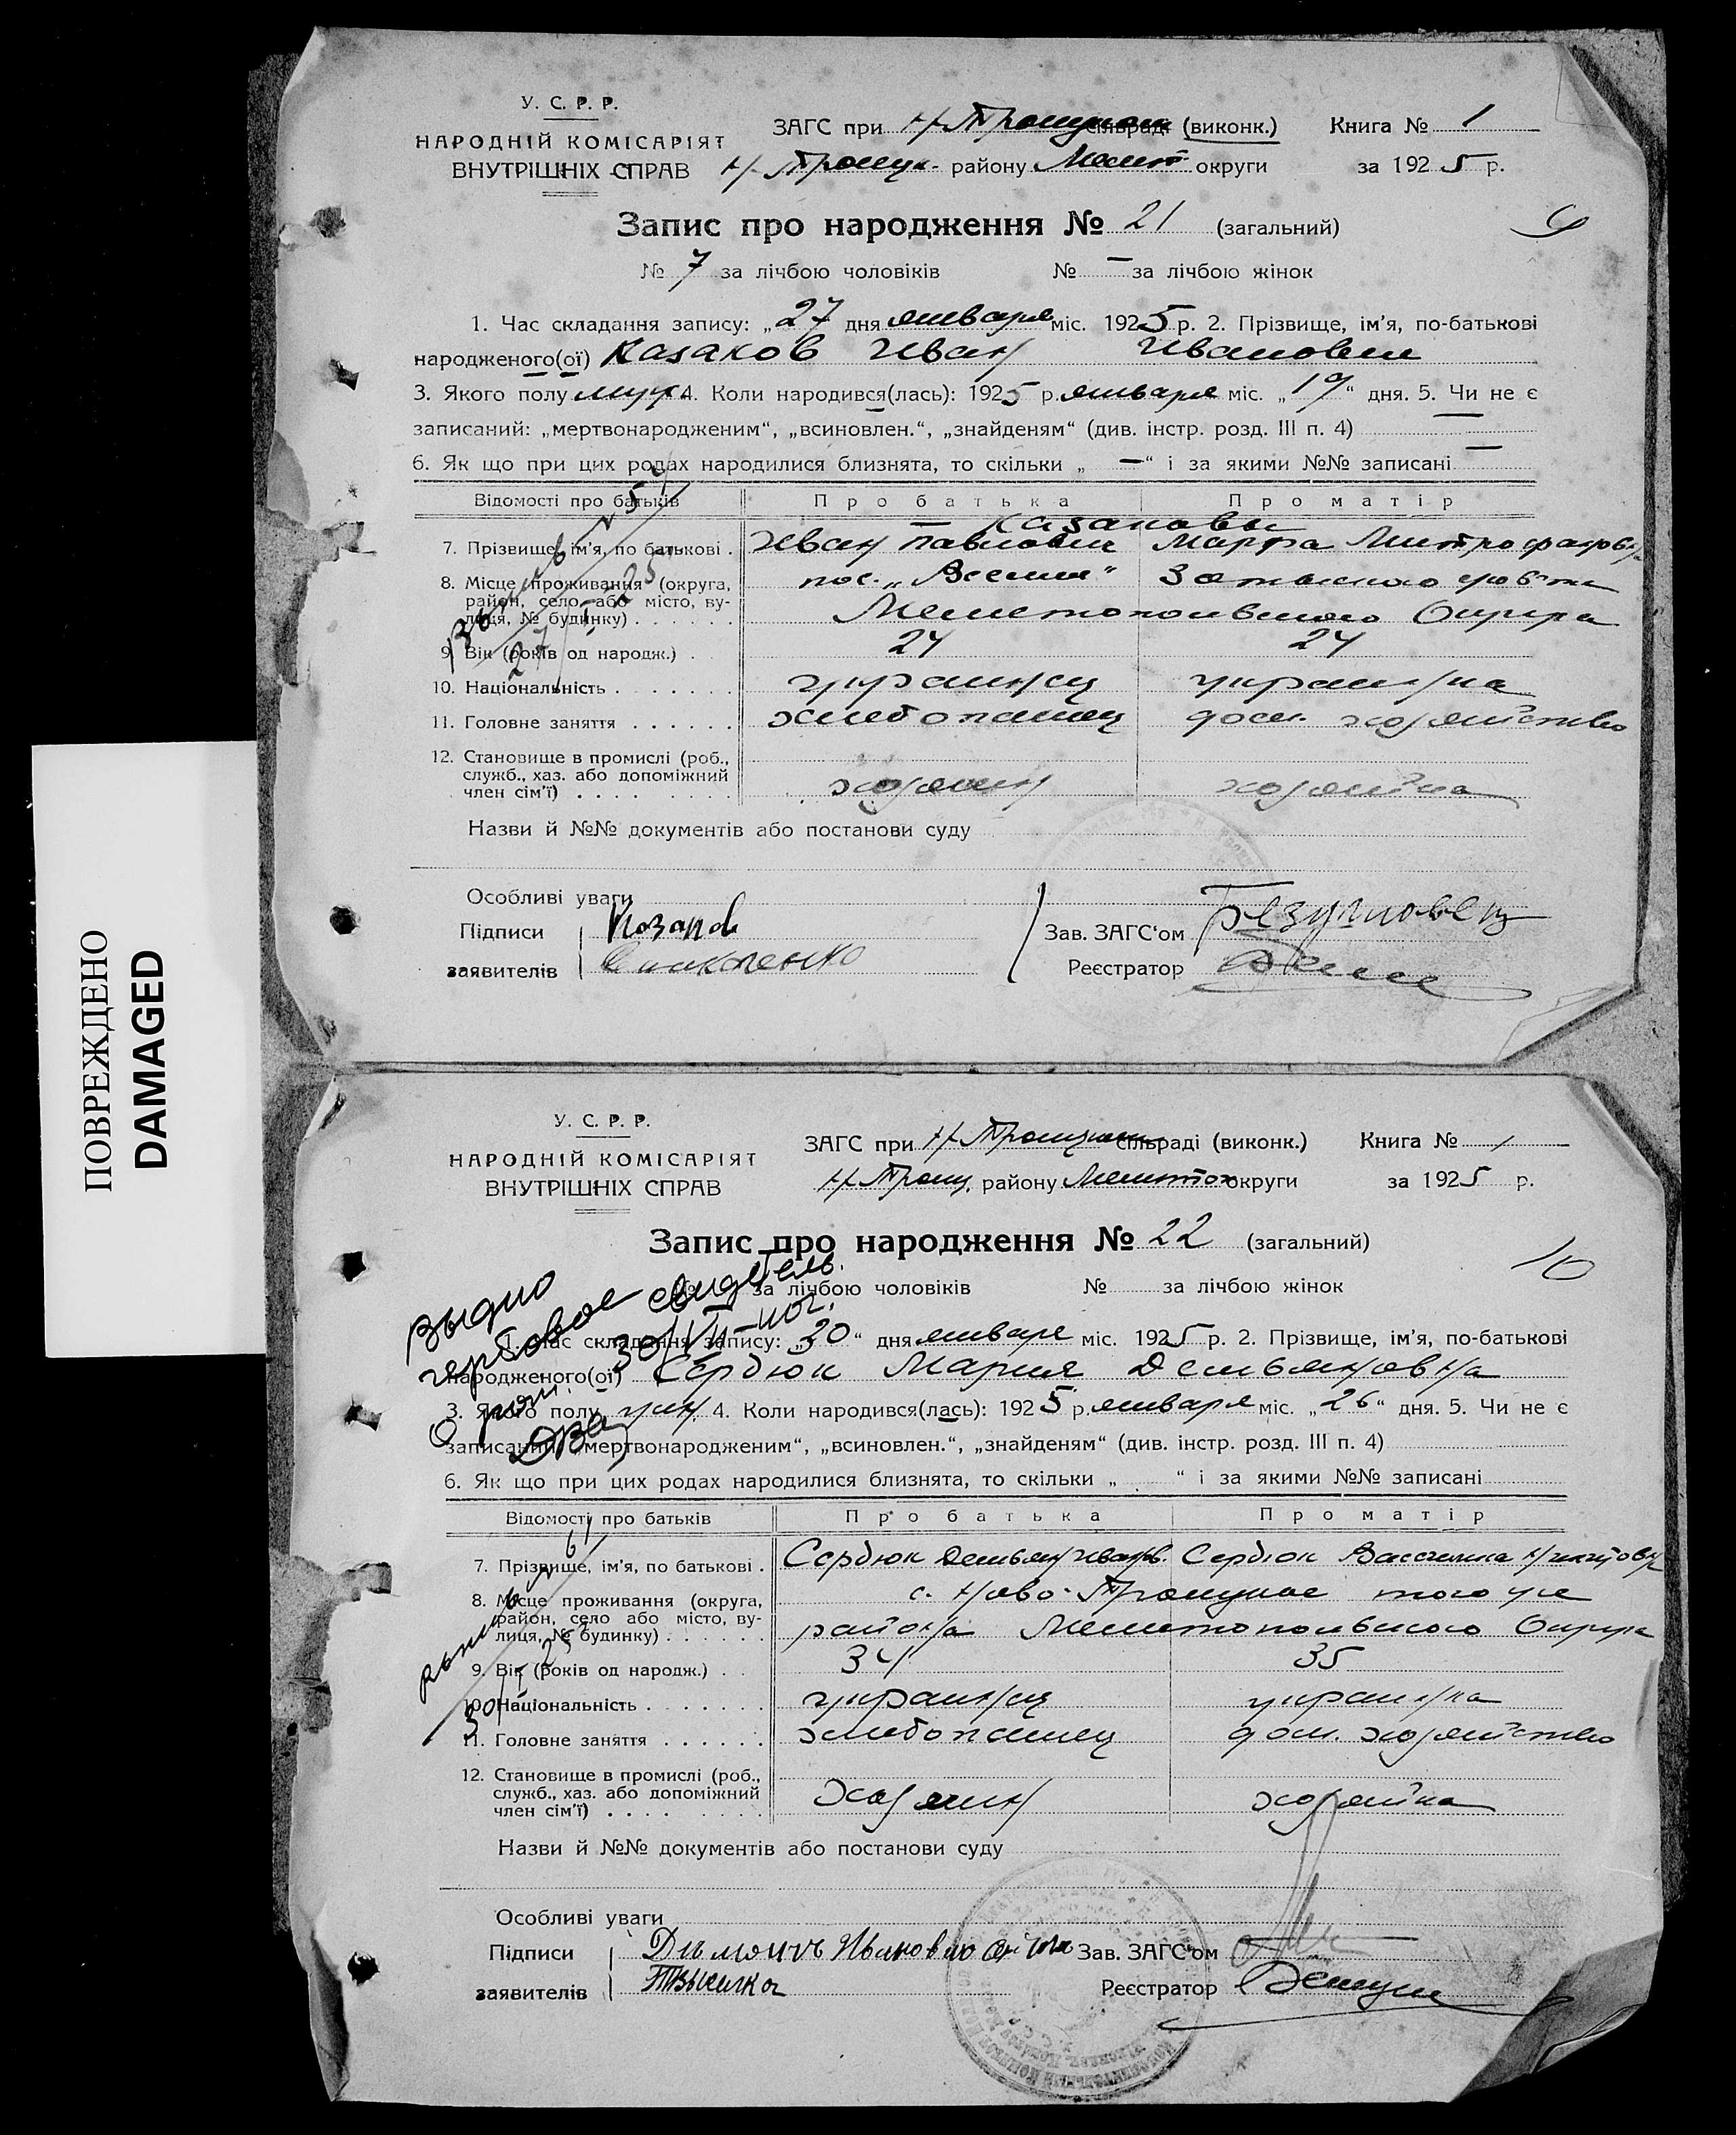 ПОВРЕЖДЕНО
DAMAGED
У. С. Р. Р.
НАРОДНІЙ КОМІСАРІЯТ
ВНУТРІШНІХ СПРАВ
ЗАГС при сільраді (виконк.) Книга № 1
району округи за 1925 р.
Запис про народження № 21 (загальний)
№ 7 за лічбою чоловіків № — за лічбою жінок
1. Час складання запису: „27 дня января міс. 1925 р. 2. Прізвище, ім’я, по-батькові
народженого(ої) Казаков Иван Иванович
3. Якого полу муж 4. Коли народився(лась): 1925 р. января міс. „19“ дня. 5. Чи не є
записаний: „мертвонародженим“, „всиновлен.“, „знайденям“ (див. інстр. розд. III п. 4) —
6. Як що при цих родах народилися близнята, то скільки „ — “ і за якими №№ записані —
Відомості про батьків Про батька Про матір
Казаковы
7. Прізвище, ім’я, по батькові . Иван Павлович Марфа Митрофановна
8. Місце проживання (округа,
район, село або місто, ву-
лиця, № будинку) . . . . . .
пос.
Мелитопольского Округа
9. Вік (років од народж.) . 24 24
10. Національність . . . . . . . украинец украинка
11. Головне заняття . . . . . . хлебопашец дом. хозяйство
12. Становище в промислі (роб.,
служб., хаз. або допоміжний
член сім’ї) . . . . . . . . хозяин хозяйка
Назви й №№ документів або постанови суду
Особливі уваги
Підписи Козаков Зав. ЗАГС‘ом
заявителів Реєстратор
У. С. Р. Р.
НАРОДНІЙ КОМІСАРІЯТ
ВНУТРІШНІХ СПРАВ
ЗАГС при сільраді (виконк.) Книга № 1
району округи за 1925 р.
Запис про народження № 22 (загальний)
10
за лічбою чоловіків № за лічбою жінок
Выдно
гербовое свидетель.
1. Час складання запису: „30“ дня января міс. 1925 р. 2. Прізвище, ім’я, по-батькові
народженого(ої) Сердюк Мария Демьяновна
3. Якого полу жен 4. Коли народився(лась): 1925 р. января міс. „26“ дня. 5. Чи не є
записаний: „мертвонародженим“, „всиновлен.“, „знайденям“ (див. інстр. розд. III п. 4)
6. Як що при цих родах народилися близнята, то скільки „ “ і за якими №№ записані
Відомості про батьків Про батька Про матір
7. Прізвище, ім’я, по батькові . Сердюк Демьян Иванов. Сердюк Никитовна
8. Місце проживання (округа,
район, село або місто, ву-
лиця, № будинку) . . . . . .
с. Ново-Троицкое того же
района Мелитопольского Округа
9. Вік (років од народж.) . . 34 35
10. Національність . . . . . . . украинец украинка
11. Головне заняття . . . . . . хлебопашец дом. хозяйство
12. Становище в промислі (роб.,
служб., хаз. або допоміжний
член сім’ї) . . . . . . . . Хозяин хозяйка
Назви й №№ документів або постанови суду
Особливі уваги
Підписи Зав. ЗАГС‘ом
заявителів Реєстратор